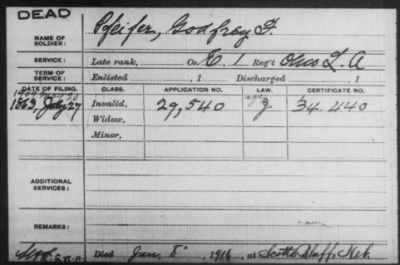 DEAD
NAME OF SOLDIER: Pfeifer, Godfrey F.
SERVICE: Late rank, Co. E. 1 Reg't Ohio L. A
TERM OF SERVICE: Enlisted , 1 Discharged , 1
DATE OF FILING. CLASS. APPLICATION NO. LAW. CERTIFICATE NO.
1863 July 27 Invalid, 29,540 34 440
Widow,
Minor,
ADDITIONAL SERVICES:
REMARKS:
Died Jan. 8, 1916, at Scotts Bluff, Neb.